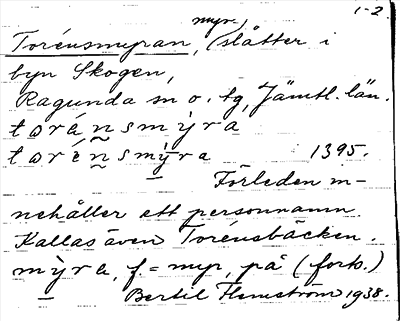 1-2.
myr,
Torénsmyran, (slåtter i
byn Skogen,
Ragunda sn o. tg, Jämtl. län.
toránsmỳra
torénsmỳra 1395.
Förleden in-
nehåller ett personnamn
Kallas även Torénsbäcken.
mỳra, f. = myr, på (forts.)
Bertil Flemström 1938.